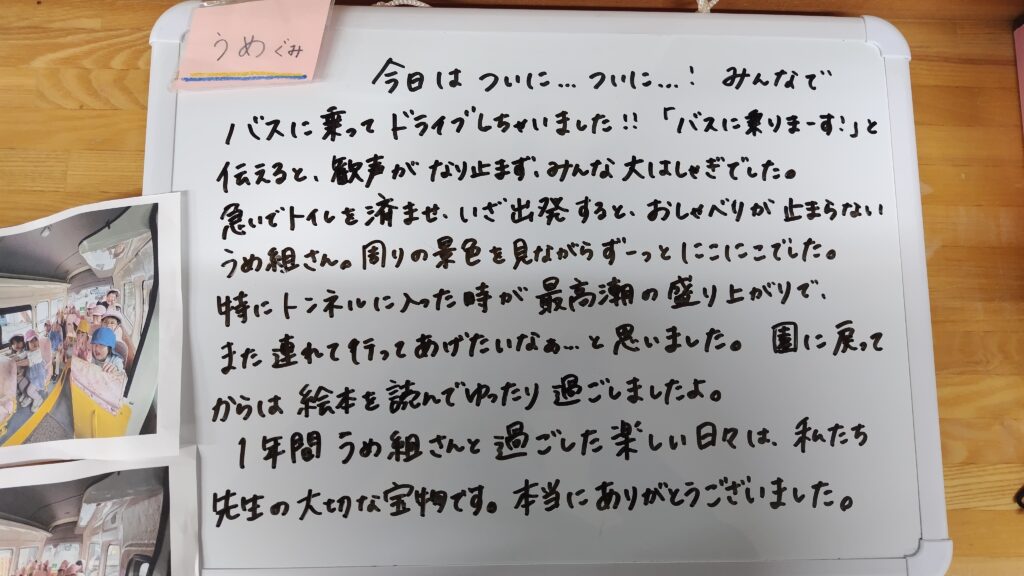 うめぐみ
今日は ついに…ついに…! みんなで
バスに乗って ドライブしちゃいました!! 「バスに乗りまーす!」と
伝えると、歓声が なり止まず、みんな 大はしゃぎでした。
急いでトイレを済ませ、いざ出発すると、おしゃべりが 止まらない
うめ組さん。周りの景色を見ながらずーっとにこにこでした。
特にトンネルに入った時が 最高潮の盛り上がりで、
また 連れて行ってあげたいなぁ…と思いました。 園に戻って
からは 絵本を読んでゆったり 過ごしましたよ。
1年間 うめ組さんと 過ごした楽しい日々は、私たち
先生の大切な宝物です。本当にありがとうございました。